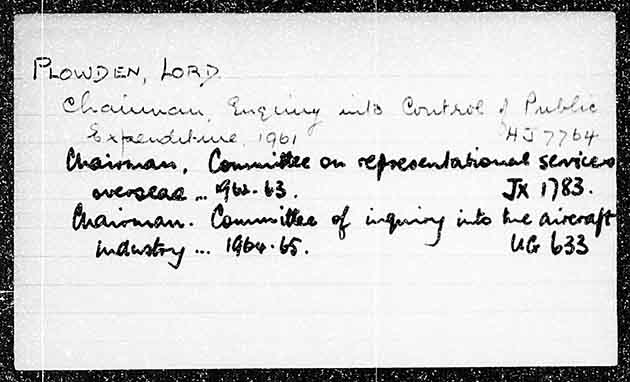 PLOWDEN, LORD
Chairman, Enquiry into Control of Public
Expenditure, 1961 HJ 7764
Chairman, Committee on representational services
overseas ... 1962-63. JX 1783.
Chairman. Committee of inquiry into the aircraft
industry ... 1964-65. UG 633